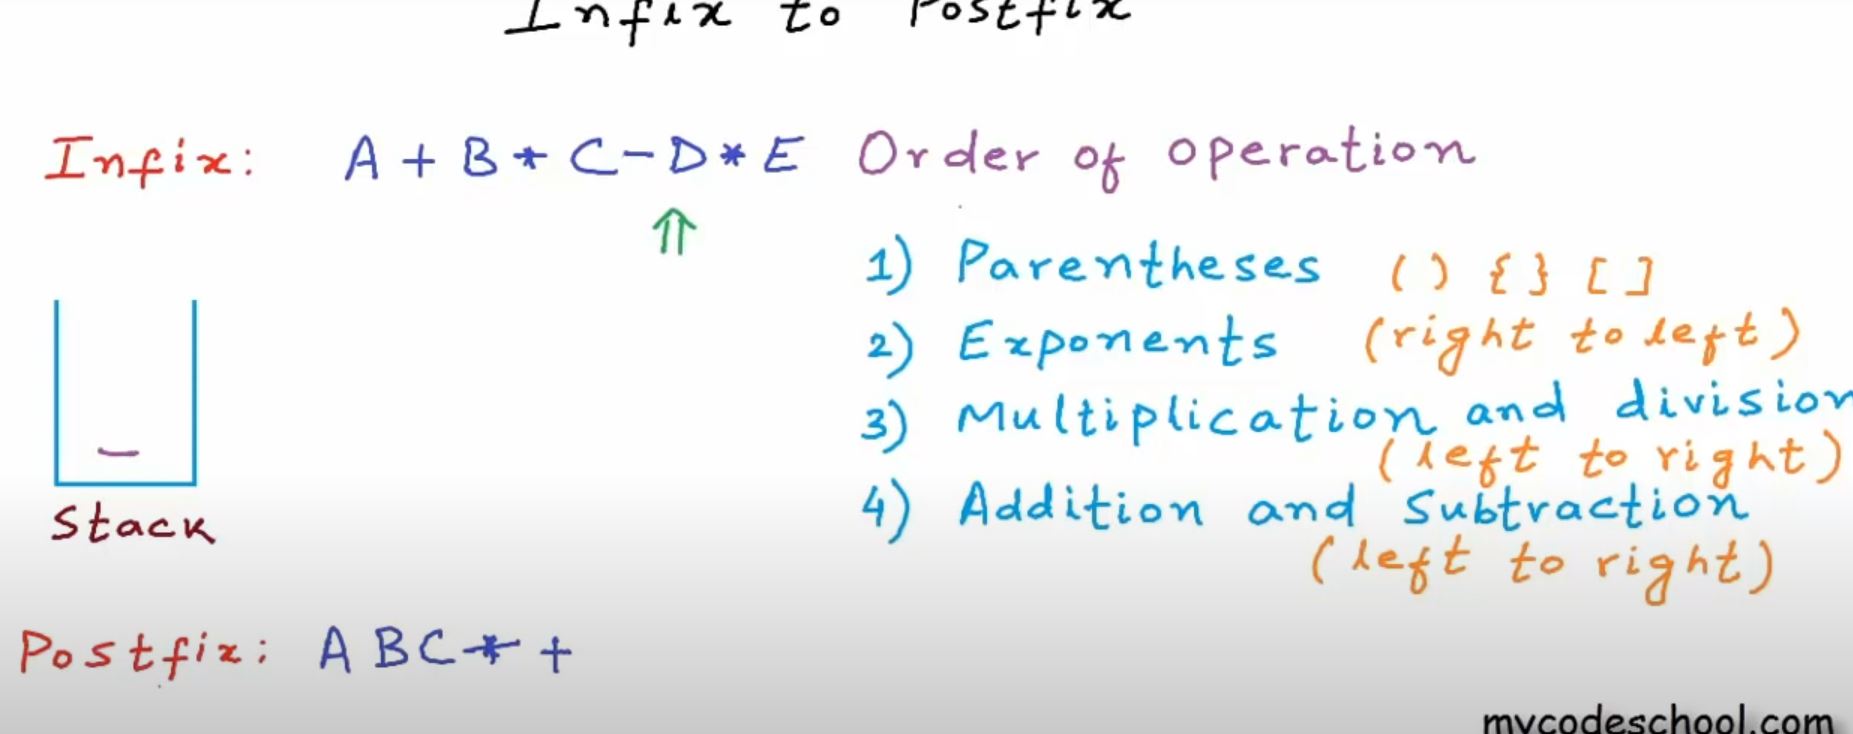 Infix to Postfix
Infix: A + B * C - D * E Order of operation
1) Parentheses ( ) { } [ ]
2) Exponents (right to left)
3) Multiplication and division
(left to right)
4) Addition and Subtraction
(left to right)
–
Stack
Postfix: A B C * +
mycodeschool.com